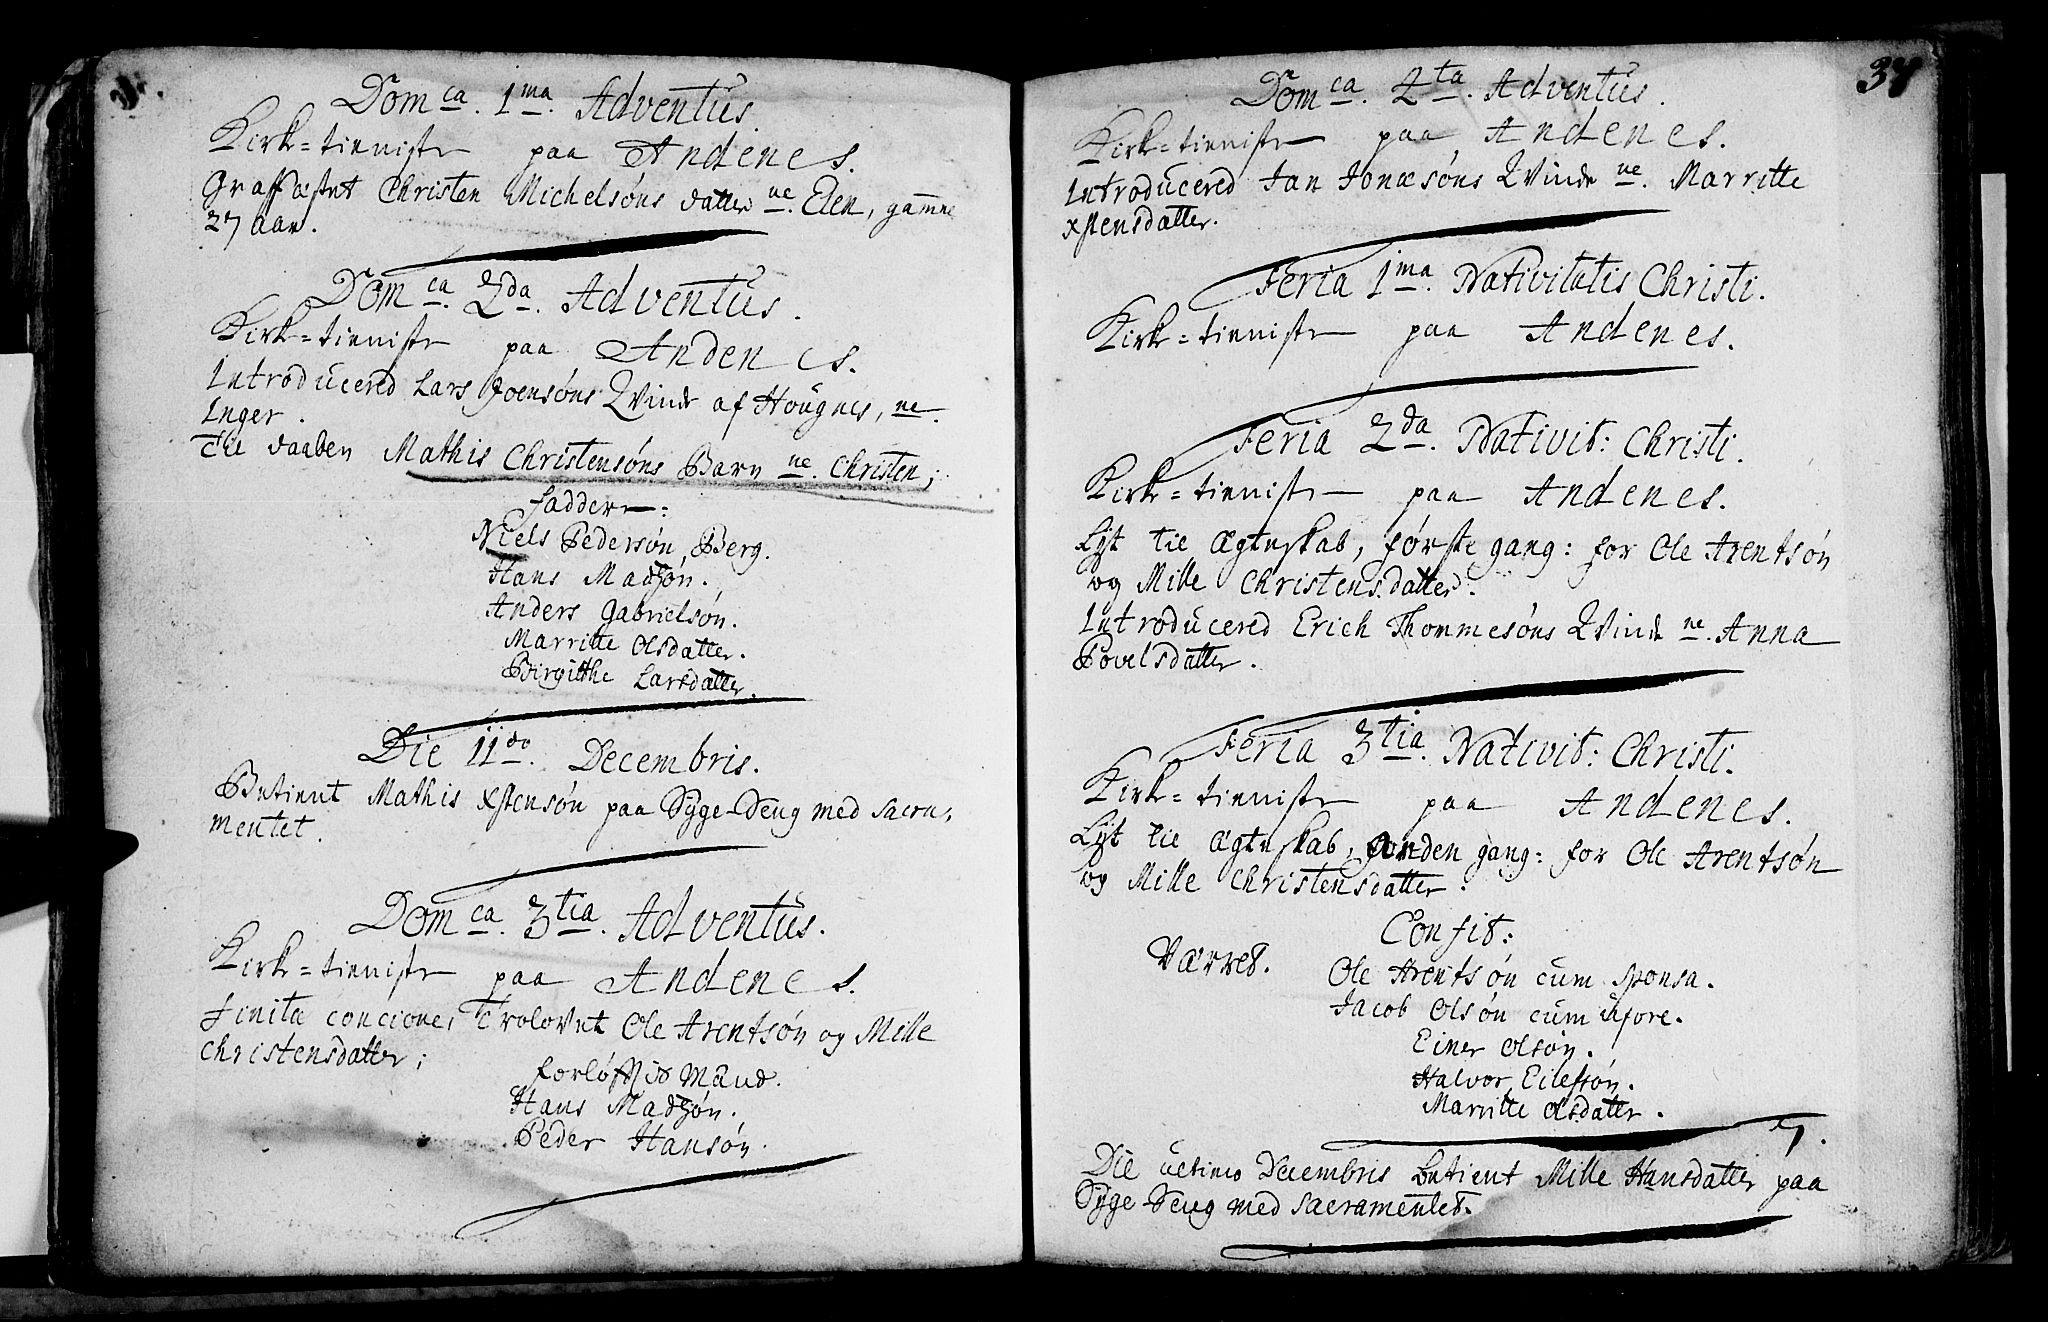 Dom ca. 1 ma. Adventus.
Kirke=tieniste paa Andenes.
Graffæstet Christen Michelsøns datter ne. Elen, gamme
27 aar.
Dom ca. 2 da. Adventus.
Kirke=tieniste paa Andenes.
Introducered Lars Joensøns Qvinde af Hougnes, ne.
Inger.
Til daaben Mathis Christensøns Barn ne. Christen;
faddere:
Niels Pedersøn Berg.
Hans Madsøn.
Anders Gabrielsøn.
Marritte Olsdatter.
Birgitthe Larsdatter.
Die 11 do. Decembris.
Betient Mathis Xstensøn paa Syge-Seng med Sacra,
mentet.
Dom ca. 3 tia. Adventus.
Kirke=tieniste paa Andenes.
Finita concione, Trolovet Ole Arentsøn og Mille
Christensdatter;
forløftis Mænd.
Hans Madsøn.
Peder Hansøn.
34
Dom ca. 4 ta. Adventus.
Kirke=tieniste paa Andenes.
Introducered Jan Jonæsøns Qvinde ne. Marritte
Xstensdatter.
Feria 1 ma. Nativitatis Christi.
Kirke=tieniste paa Andenes.
Feria 2 da. Nativit: Christi.
Kirke=tieniste paa Andenes.
Lyt til Ægteskab, første gang: for Ole Arentsøn
og Mille Christensdatter.
Introducered Erich Thommesøns Qvinde ne. Anna
Povelsdatter.
Feria 3 tia. Nativit: Christi.
Kirke=tieniste paa Andenes.
Lyt til Ægteskab, anden gang: for Ole Arentsøn
og Mille Christensdatter.
Confit:
Værret. Ole Arentsøn cum sponsa.
Jacob Olsøn cum uxore.
Einer Olsøn.
Halvor Eilefsøn.
Marritte Olsdatter.
7.
Die ultimo Decembris betient Mille Hansdatter paa
Syge-Seng med Sacramentet.